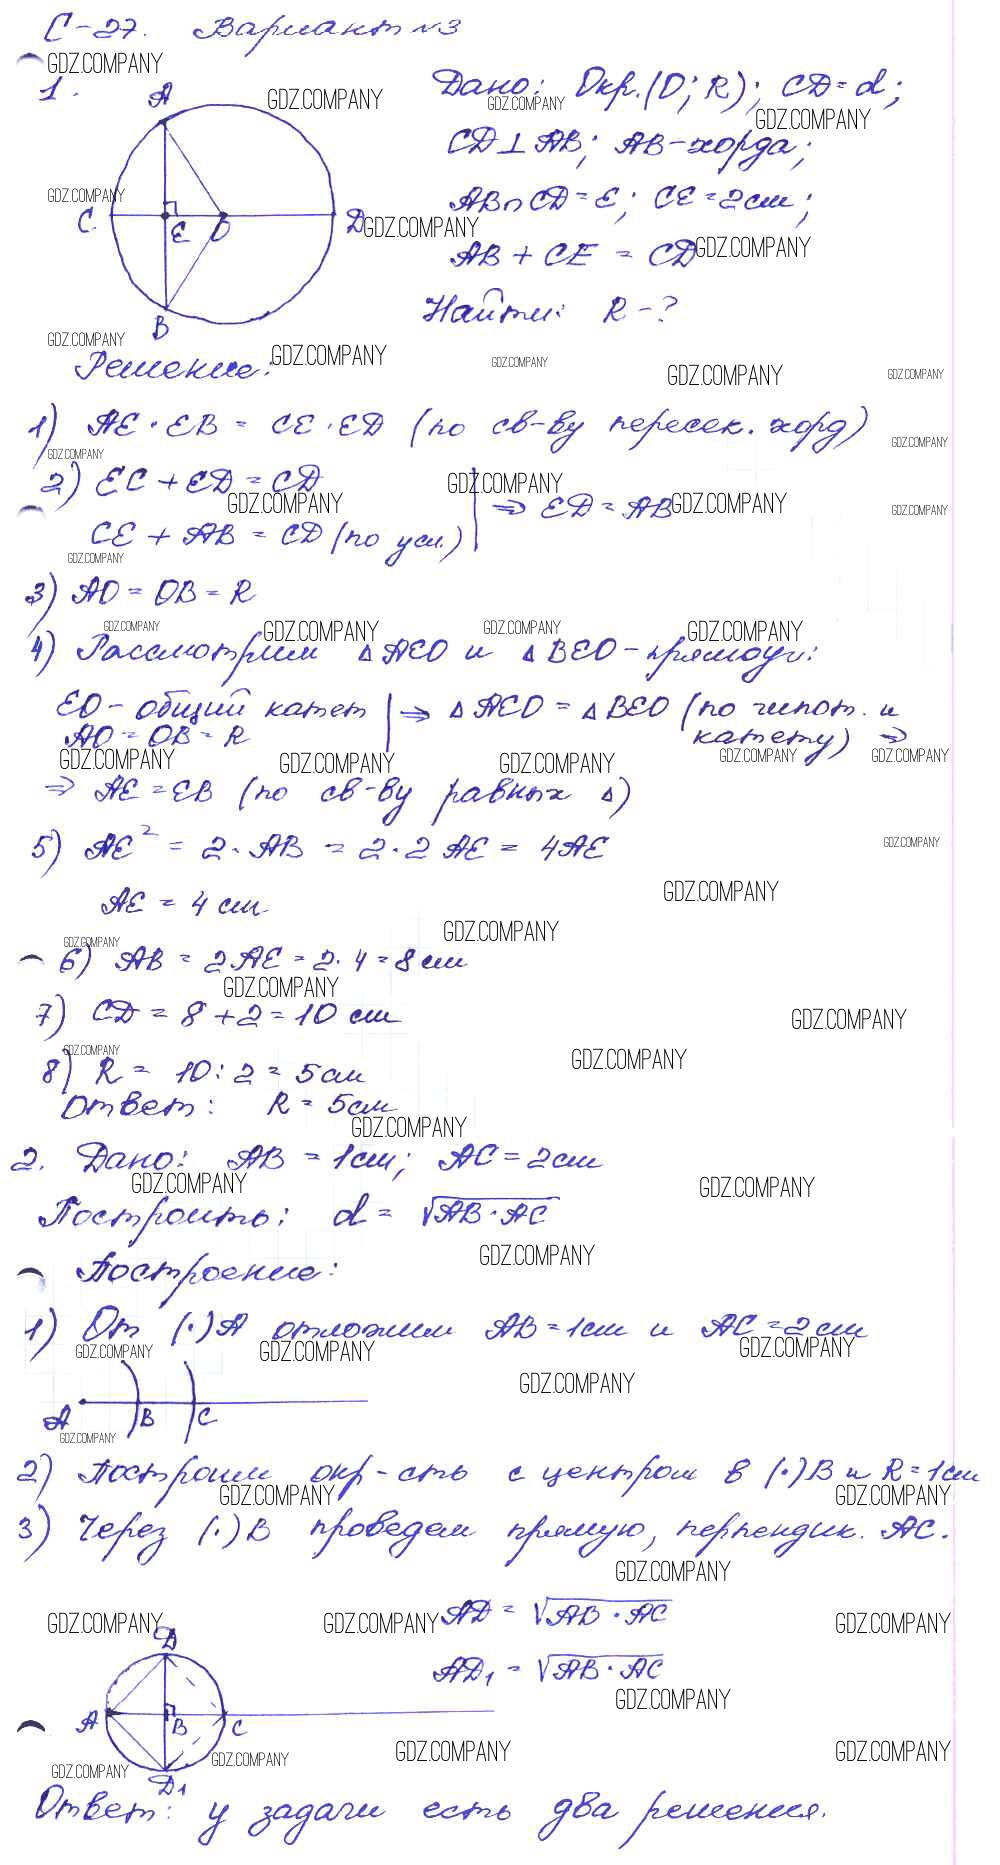 С-27. Вариант №3
1.
Дано: Окр.(O; R); CD = d;
CD ⊥ AB; AB - хорда;
AB ∩ CD = E; CE = 2см;
AB + CE = CD
Найти: R - ?
A
C E O D
B
Решение:
1) AE · EB = CE · ED (по св-ву пересек. хорд)
2) EC + ED = CD
CE + AB = CD (по усл.) | ⇒ ED = AB
3) AO = OB = R
4) Рассмотрим △AEO и △BEO - прямоуг:
EO - общий катет | ⇒ △AEO = △BEO (по гипот. и
AO = OB = R катету) ⇒
⇒ AE = EB (по св-ву равных △)
5) AE² = 2 · AB = 2 · 2 AE = 4AE
AE = 4 см
6) AB = 2·AE = 2 · 4 = 8 см
7) CD = 8 + 2 = 10 см
8) R = 10 : 2 = 5см
Ответ: R = 5см
2. Дано: AB = 1см; AC = 2см
Построить: d = √AB · AC
Построение:
1) От (·) A отложим AB = 1см и AC = 2см
A B C
2) Построим окр-сть с центром в (·) B и R = 1см
3) Через (·) B проведем прямую, перпендик. AC.
AD = √AB · AC
AD₁ = √AB · AC
D
A B C
D₁
Ответ: у задачи есть два решения.
GDZ.COMPANY